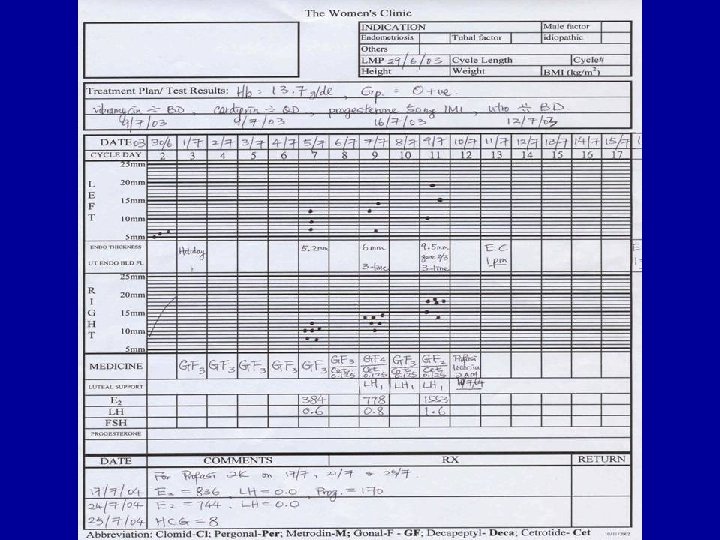 The Women's Clinic
INDICATION Male factor
Endometriosis Tubal factor idiopathic
Others
LMP 29/6/03 Cycle Length Cycle#
Height Weight BMI (kg/m²)
Treatment Plan/ Test Results: Hb = 13.7 g/dl, Gp. = O +ve
BD, QD, progesterone 50mg IMI, BD
9/7/03 9/7/03 16/7/03 12/7/03
DATE 03 30/6 1/7 2/7 3/7 4/7 5/7 6/7 7/7 8/7 9/7 10/7 11/7 12/7 13/7 14/7 15/7
CYCLE DAY 2 3 4 5 6 7 8 9 10 11 12 13 14 15 16 17
25mm
L 20mm
E 15mm
F 10mm
T 5mm
ENDO THICKNESS Holiday 5.2mm 6mm 9.5mm E.C.
UT ENDO BLD FL 3-line 3-line 1pm
25mm
R 20mm
I 15mm
G
H 10mm
T 5mm
MEDICINE GF3 GF3 GF3 GF3 GF3 GF3 GF2 GF3 GF2 Profasi
Cet 0.125 Cet 0.125 Cet 0.125 Cet 0.125
LUTEAL SUPPORT LH1 LH1 LH1
E2 384 778 1583
LH 0.6 0.8 1.6
FSH
PROGESTERONE
DATE COMMENTS RX RETURN
For Profasi 2K on 17/7, 21/7 & 25/7
17/7/04 E2 = 836 LH = 0.0 Prog. = 170
24/7/04 E2 = 744 LH = 0.0
25/7/04 HCG = 8
Abbreviation: Clomid-Cl; Pergonal-Per; Metrodin-M; Gonal-F - GF; Decapeptyl- Deca; Cetrotide- Cet